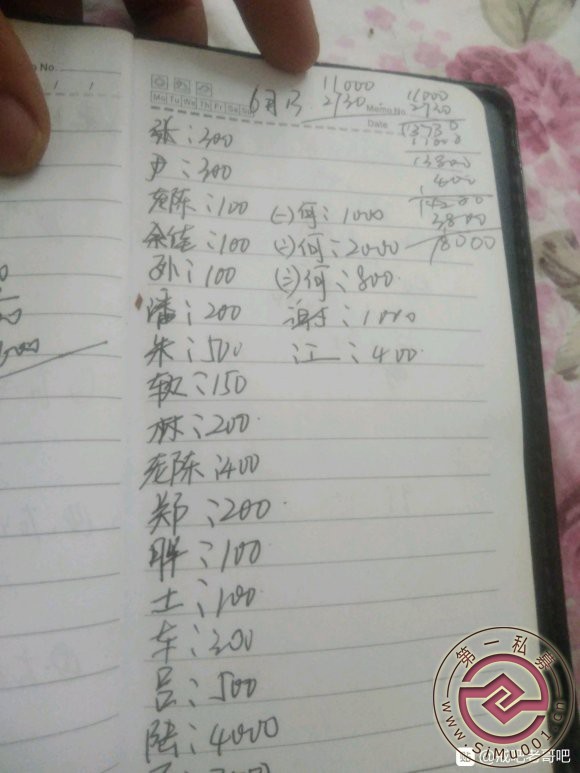 No.
Mo Tu We Th Fr Sa Su
Memo No.
Date
6月
11000
2730
11000
2730
13730
11000
13800
400
14200
3800
18000
张:300
尹:300
老陈:100
(一)何:1000
余佳:100
(二)何:2000
孙:100
(三)何:800
潘:200
谢:1000
朱:500
江:400
:150
林:200
老陈:400
郑:200
:100
土:100
车:300
吕:500
陆:4000
第一私募
www.SiMu001